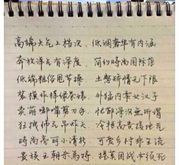 高端大气上档次 低调奢华有内涵
奔放洋气有深度 简约时尚国际范
低俗粗俗甩节操 土憋矫情无下限
装模作样绿茶婊 外猛内柔女汉子
卖萌嘟嘴剪刀手 忧郁深沉无所谓
狂拽帅气吊炸天 冷艳高贵接地气
时尚亮丽小清新 可爱乡村非主流
贵族王朝杀马特 提莫团战必须死